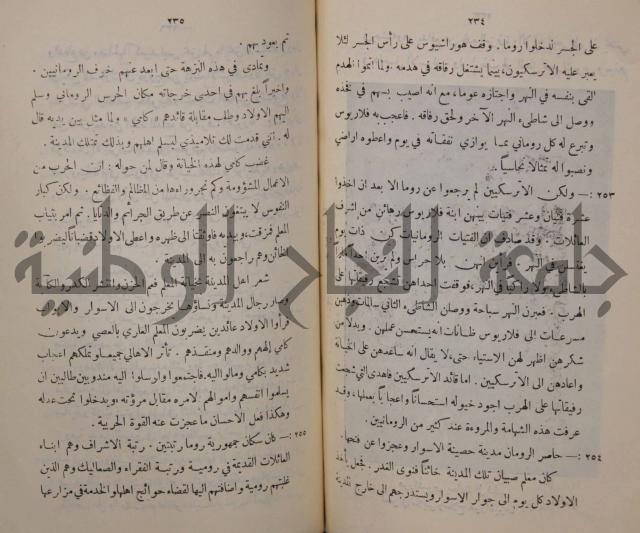 ٢٣٤
على الجسر لدخلوا روما. وقف هوراشيوس على رأس الجسر لئلا
يعبر عليه الاترسكيون، بينما يشتغل رفاقه في هدمه. ولما اتموا الهدم
القى بنفسه في النهر واجتازه عوماً، مع انه اصيب بسهم في فخذه
ووصل الى شاطىء النهر الآخر ولحق رفاقه. فأعجب به فلاريوس
وتبرع له كل روماني بما يوازي نفقاته في يوم واعطوه اراضي
ونصبوا له تمثالاً نحاسياً.
٢٥٣ :— ولكن الاترسكيين لم يرجعوا عن روما الا بعد ان اخذوا
عشرة فتيان وعشر فتيات بينهن ابنة فلاريوس رهائن من اشرف
العائلات. وقد صادف ان الفتيات الرومانيات كن ذات يوم
يغتسلن في النهر، بلا حراس ولم يرين احداً
بالشاطىء ولا راكباً في النهر، فوقفت احداهن تشجع رفيقاتها على
الهرب. فعبرن النهر سباحة ووصلن الشاطىء الثاني سالمات وذهبن
مسرعات الى فلاريوس ظانات انه يستحسن عملهن. وبدلاً من
شكرهن اظهر لهن الاستياء حتى لا يقال انه ساعدهن على الخيانة
واعادهن الى الاترسكيين. اما قائد الاترسكيين فاهدى التي شجعت
رفيقاتها على الهرب اجود خيوله استحساناً واعجاباً بعملها، وقد
عرفت هذه الشهامة والمروءة عند كثير من الرومانيين.
٢٥٤ :— حاصر الرومان مدينة حصينة الاسوار وعجزوا عن فتحها.
كان معلم صبيان تلك المدينة خائناً فنوى الغدر. فجعل يأخذ
الاولاد كل يوم الى جوار الاسوار ويستدرجهم الى خارج المدينة
٢٣٥
ثم يعود بهم.
وتمادى في هذه النزهة حتى ابعد عنهم خوف الرومانيين.
واخيراً بلغ بهم في احدى خرجاته مكان الحرس الروماني وسلم
اليهم الاولاد وطلب مقابلة قائدهم «كامي» ولما مثل بين يديه قال
له. انني قدمت لك تلاميذي ليسلم اهلهم وبذلك تمتلك المدينة.
غضب كامي لهذه الخيانة وقال لمن حوله: ان الحرب من
الاعمال المشؤومة وكم تجر وراءها من المظالم والفظائع. ولكن كبار
النفوس لا يبتغون النصر عن طريق الجرائم والدنايا. ثم امر بثياب
المعلم فمزقت، وبيديه فأوثقتا الى ظهره واعطى الاولاد قضباناً ليضربوا
الخائن وهم راجعون به الى المدينة.
شعر اهل المدينة بخيانة المعلم فعم الحزن وانتشر الكدر والكآبة
وصار رجال المدينة ونساؤها يخرجون الى الاسوار والابواب
فرأوا الاولاد عائدين يضربون المعلم العاري بالعصي ويدعون
كامي إلههم ووالدهم ومنقذهم. تأثر الاهالي جميعاً وتملكهم اعجاب
شديد بكامي ومالوا اليه. فاجتمعوا وارسلوا اليه مندوبين طالبين ان
يسلموا انفسهم واموالهم لامره مقابل مروءته، ويدخلوا تحت عدله
وهكذا فعل الاحسان ما عجزت عنه القوة الحربية.
٢٥٥ :— كان سكان جمهورية روما رتبتين. رتبة الاشراف وهم ابناء
العائلات القديمة في رومية ورتبة الفقراء والصعاليك وهم الذين
غلبتهم رومية واضافتهم اليها لقضاء حوائج اهلها والخدمة في مزارعها
جامعة النجاح الوطنية